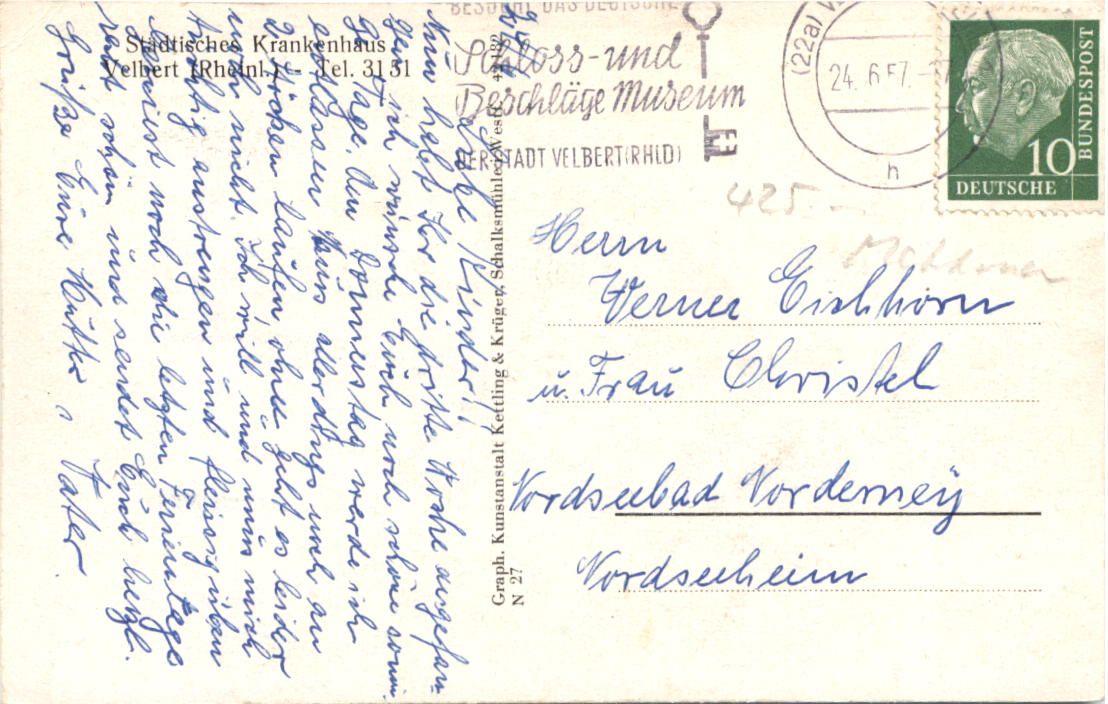 Städtisches Krankenhaus
Velbert (Rheinl.) - Tel. 31 51
BESUCHT DAS DEUTSCHE
Schloss- und
Beschläge Museum
DER STADT VELBERT (RHLD)
(22a)
24. 6. 57.
h
10
DEUTSCHE
BUNDESPOST
425.-
Liebe Kinder!
Nun habt Ihr die dritte Woche angefan-
gen, ich wünsche Euch noch schöne sonni-
ge Tage. Am Donnerstag werde ich
entlassen muss allerdings noch an
2 Stöcken laufen ohne geht es leider
noch nicht. Ich will und muss mich
tüchtig anstrengen und fleissig üben
Geniesst noch die letzten Ferientage
recht schön und seid Euch herzl.
Grüße Eure Mutter u. Vater.
Graph. Kunstanstalt Kettling & Krüger, Schalksmühle, Westf.
N 27
Herrn
Werner Eichhorn
u. Frau Christel
Nordseebad Norderney
Nordseeheim